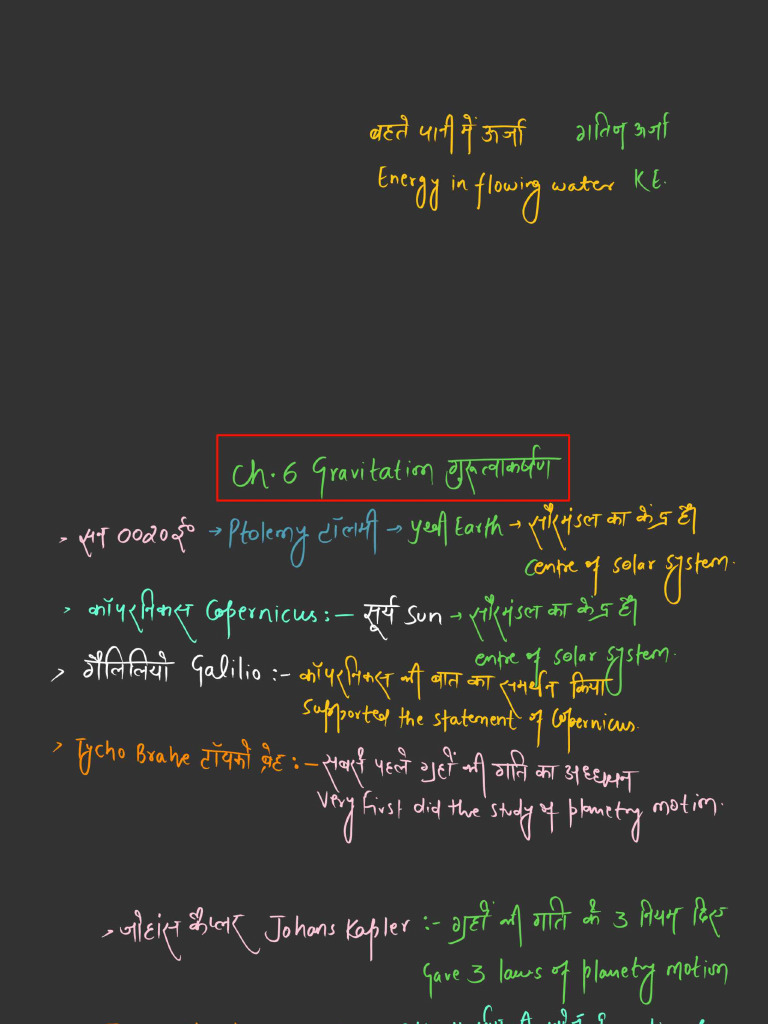 बहते पानी में ऊर्जा गतिज ऊर्जा
Energy in flowing water K.E.
Ch. 6 Gravitation गुरुत्वाकर्षण
> सन 0020 ई० → Ptolemy टॉलमी → पृथ्वी Earth → सौरमंडल का केंद्र है।
Centre of solar system.
> कॉपरनिकस Copernicus :- सूर्य Sun → सौरमंडल का केंद्र है।
entre of solar system.
> गैलिलियो Galilio :- कॉपरनिकस की बात का समर्थन किया
Supported the statement of Copernicus.
> Tycho Brahe टॉयको ब्रेह :- सबसे पहले ग्रहों की गति का अध्ययन
Very first did the study of planetry motion.
> जोहांस कैप्लर Johans Kapler :- ग्रहों की गति के 3 नियम दिए
Gave 3 laws of planetry motion